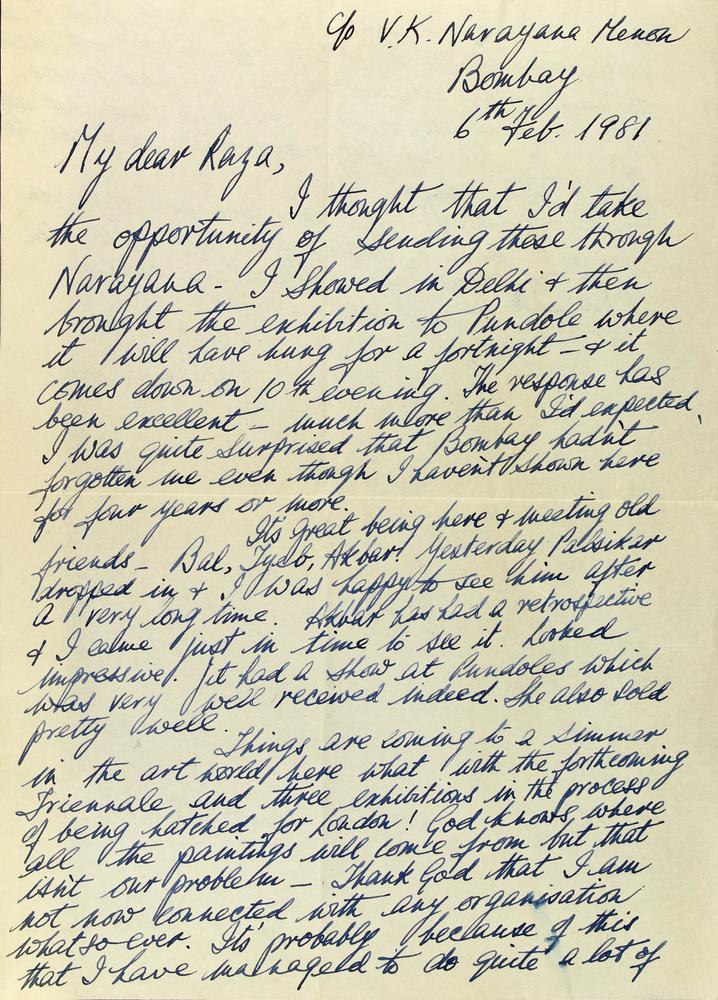 c/o V.K. Narayana Menon
Bombay
6th Feb. 1981
My dear Raza,
I thought that I'd take
the opportunity of sending these through
Narayana - I showed in Delhi & then
brought the exhibition to Pundole where
it will have hung for a fortnight - & it
comes down on 10th evening. The response has
been excellent - much more than I'd expected,
I was quite surprised that Bombay hadn't
forgotten me even though I haven't shown here
for four years or more.
It's great being here & meeting old
friends - Bal, Tyeb, Akbar! Yesterday Palsikar
dropped in & I was happy to see him after
a very long time. Akbar has had a retrospective
& I came just in time to see it. Looked
impressive. had a show at Pundoles which
was very well received indeed. She also sold
pretty well.
Things are coming to a simmer
in the art world here what with the forthcoming
Triennale and three exhibitions in the process
of being hatched for London! God knows, where
all the paintings will come from but that
isn't our problem - Thank God that I am
not now connected with any organisation
what so ever. It's probably because of this
that I have managed to do quite a lot of